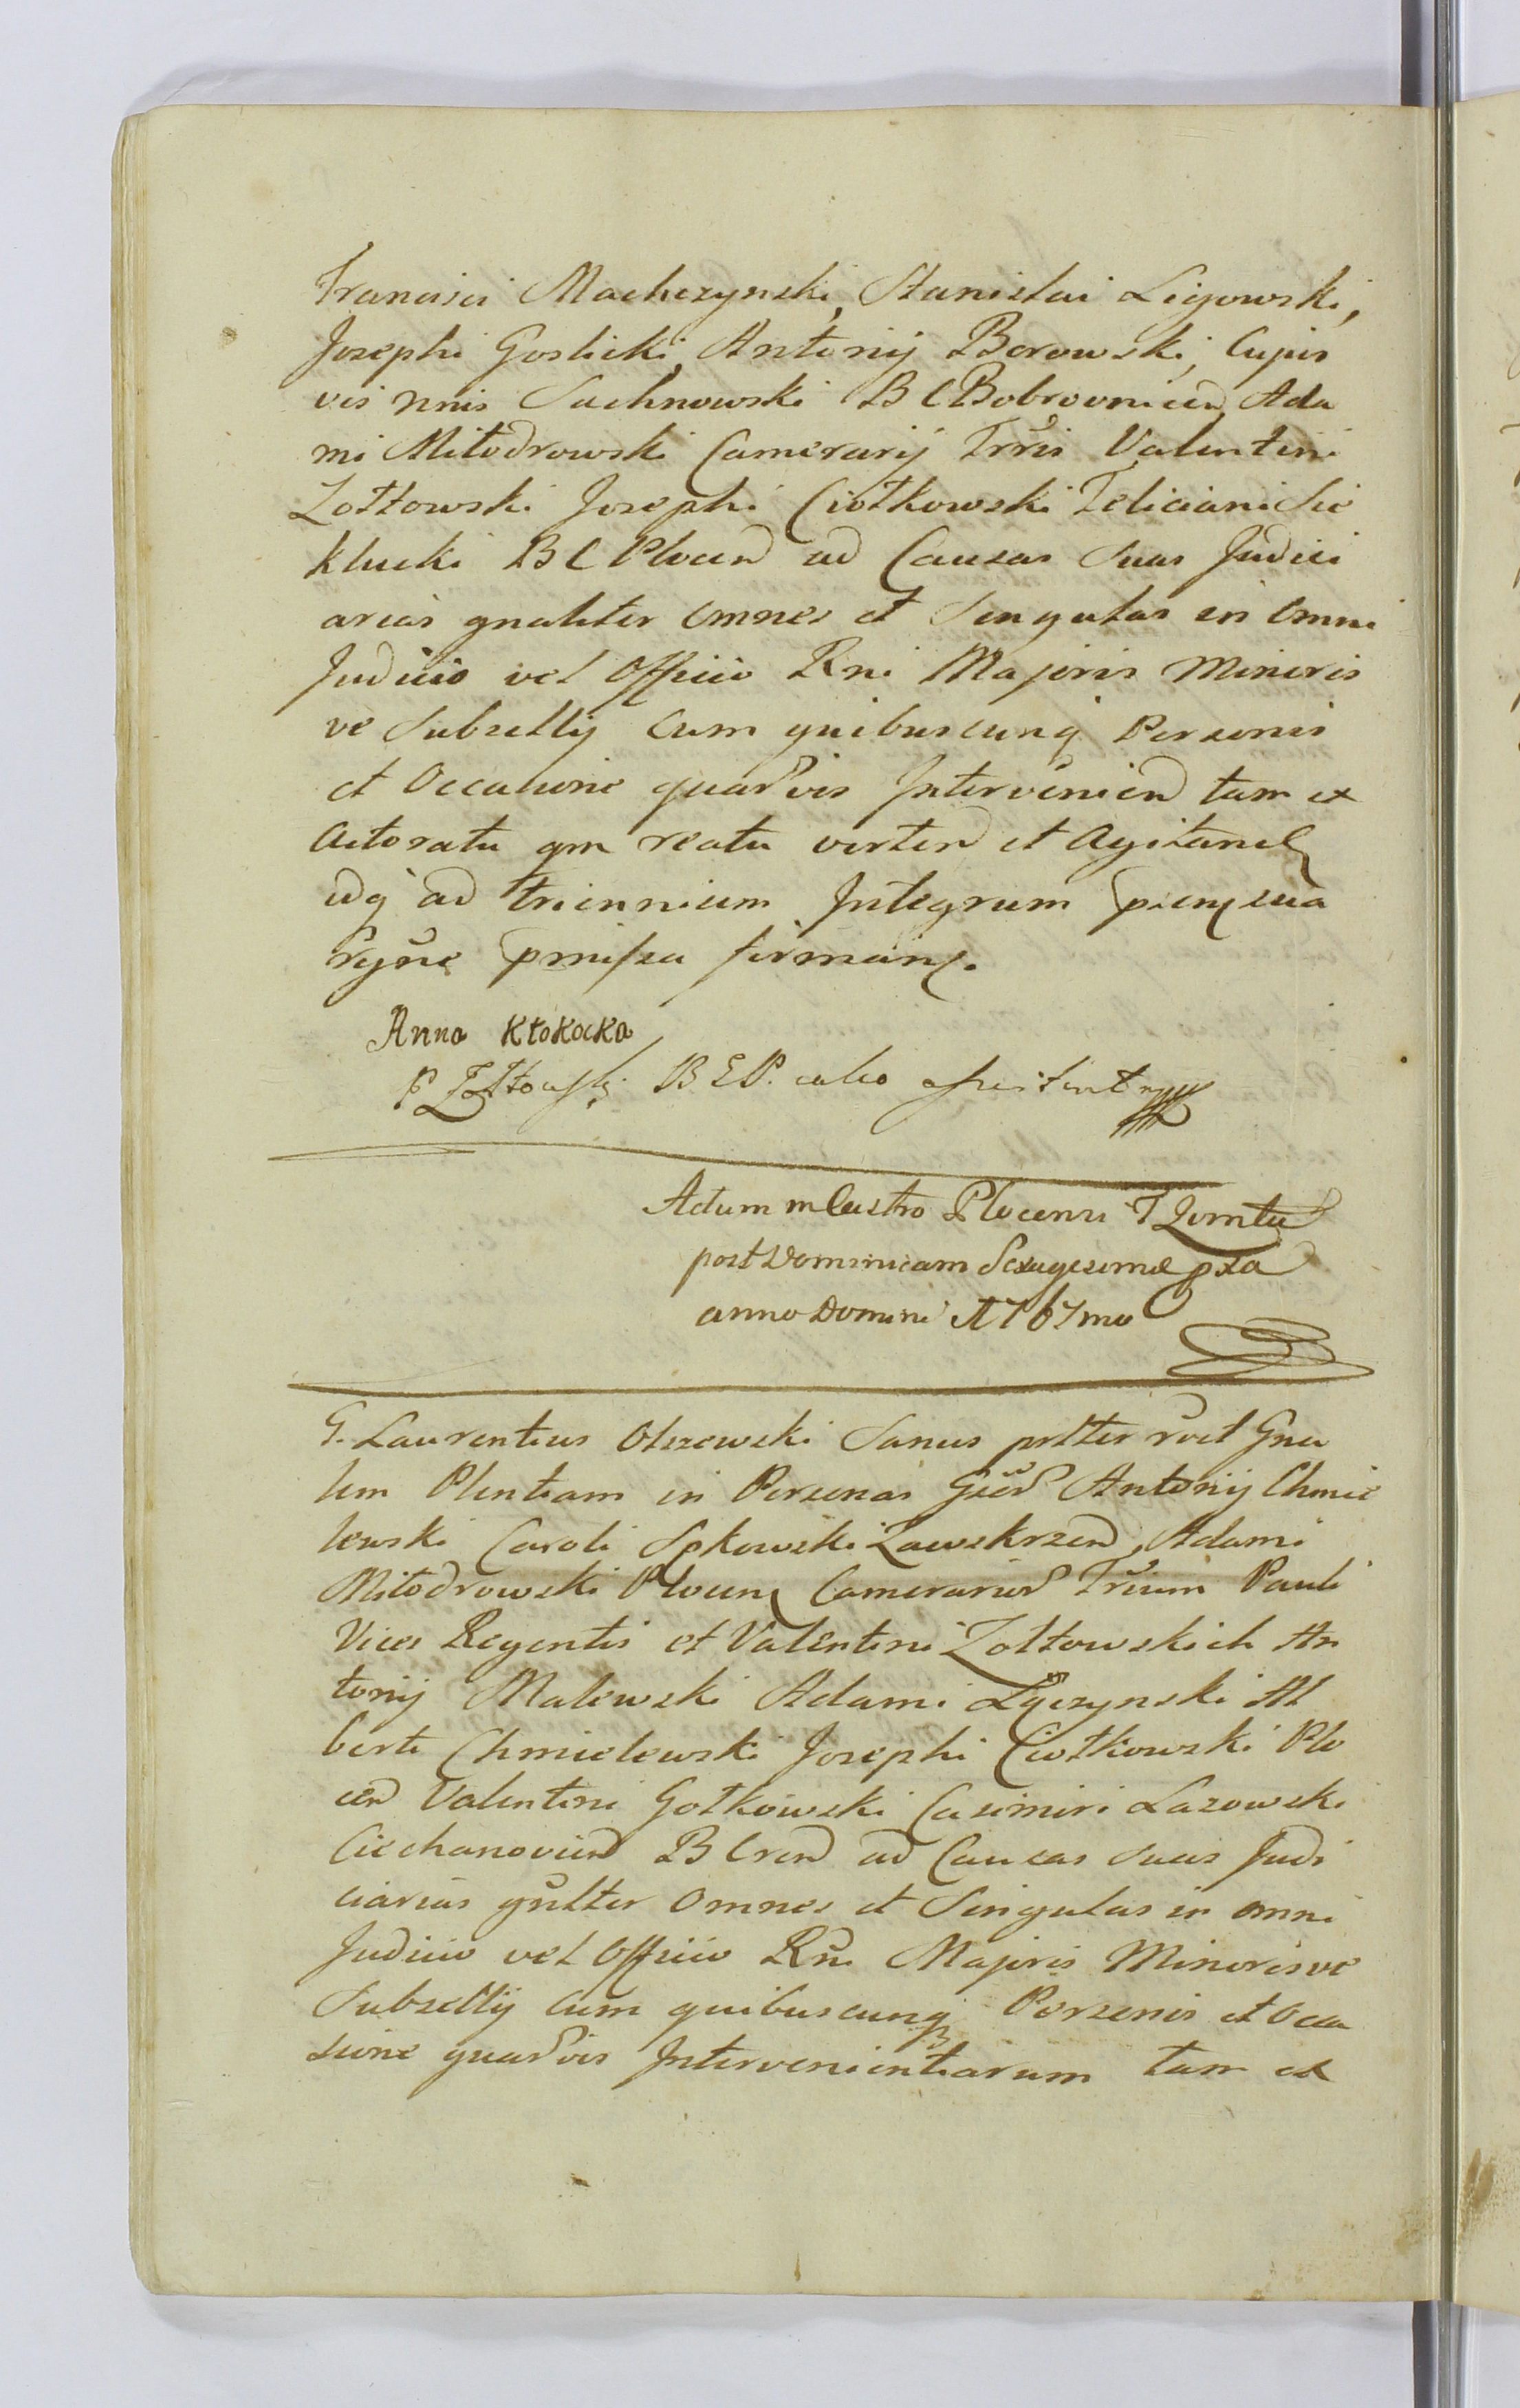 Francisci Machczynski, Stanislai Ligowski,
Josephi Goslicki, Antonij Borowski, Cujus
vis nnis Suchnowski B C Bobrovnicen, Ada
mi Miłodrowski Camerarij Trris Valentini
Zołtowski Josephi Ciołkowski Feliciani Sie
klucki B C Plocen ad Causas Suas Judici
arias gnaliter Omnes et Singulas in Omni
Judicio vel Officio Rni Majoris Minoris
ve Subsellij Cum quibuscunq Personis
et Occasione quarvis Intervenien tam ex
Actoratu qm reatu verten et Agitand
idq ad triennium Integrum
pmissa firman.
Anna Kłokocka
P Zołtowski B E P.
Actum in Castro Plocensi F 2 Comtu
post Dominicam Sexagesimæ pxa
anno Domini 1767mo
G. Laurentius Olszewski Sanus pltter rvit Gna
lem Plentiam in Personas Gsor Antonij Chmie
lewski Caroli Spkowski Zawskrzen, Adami
Miłodrowski Plocen Camerarior Trrium Pauli
Vices Regentis et Valentini Zołtowskich An
tonij Malewski Adami Łączynski Al
berti Chmielewski Josephi Ciołkowski Plo
cen Valentini Gołkowski Casimiri Lasowski
Ciechanovien B Cren ad Causas Suas Judi
ciarias gnltter Omnes et Singulas in omni
Judicio vel Officio Rni Majoris Minorisve
Subsellij Cum quibuscunq Personis et Occa
sione quarvis Intervenientiarum tam ex